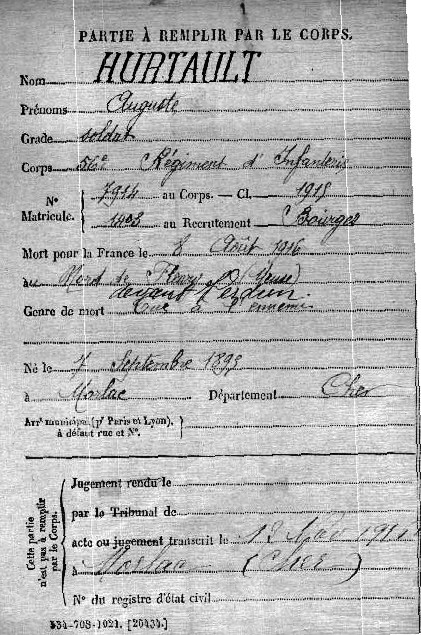 PARTIE À REMPLIR PAR LE CORPS.
Nom HURTAULT
Prénoms Auguste
Grade soldat
Corps 56e Régiment d'Infanterie
N° Matricule. { 7914 au Corps. — Cl. 1915
1408 au Recrutement Bourges
Mort pour la France le 8 Août 1916
au Nord de Fleury (Meuse)
devant Verdun
Genre de mort Tué à l'ennemi
Né le 7 Septembre 1895
à Morlac Département Cher
Arrt municipal (pr Paris et Lyon), à défaut rue et N°. }
Cette partie n'est pas à remplir par le Corps. {
Jugement rendu le
par le Tribunal de
acte ou jugement transcrit le 13
à Morlac (Cher)
N° du registre d'état civil
534-708-1921. [26434.]